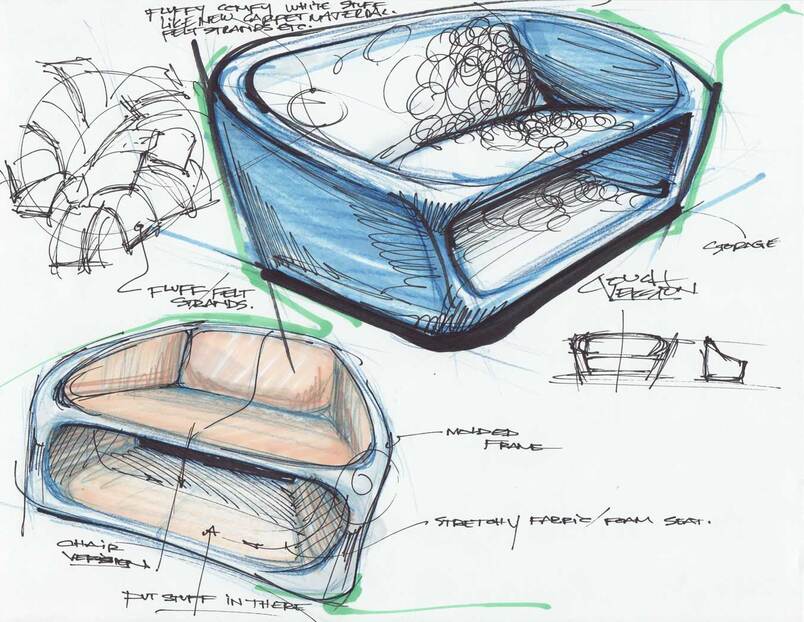 FLUFFY COMFY WHITE STUFF
LIKE NEW CARPET MATERIAL.
FELT STRANDS ETC.
FLUFF/FELT
STRANDS.
STORAGE
COUCH
VERSION
MOLDED
FRAME
STRETCHY FABRIC/FOAM SEAT.
CHAIR
VERSION.
PUT STUFF IN THERE